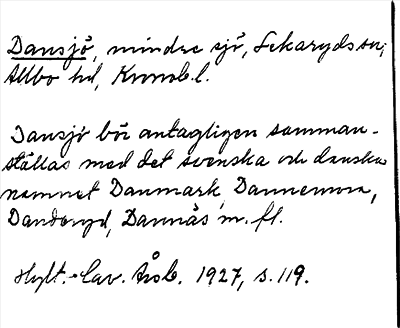 Dansjö, mindre sjö, Sekaryds sn,
Allbo hd, Kronob. l.
Dansjö bör antagligen samman-
ställas med det svenska och danska
namnet Danmark, Dannemora,
Danderyd, Dannäs m. fl.
Hylt.-Cav. Årsb. 1927, s. 119.